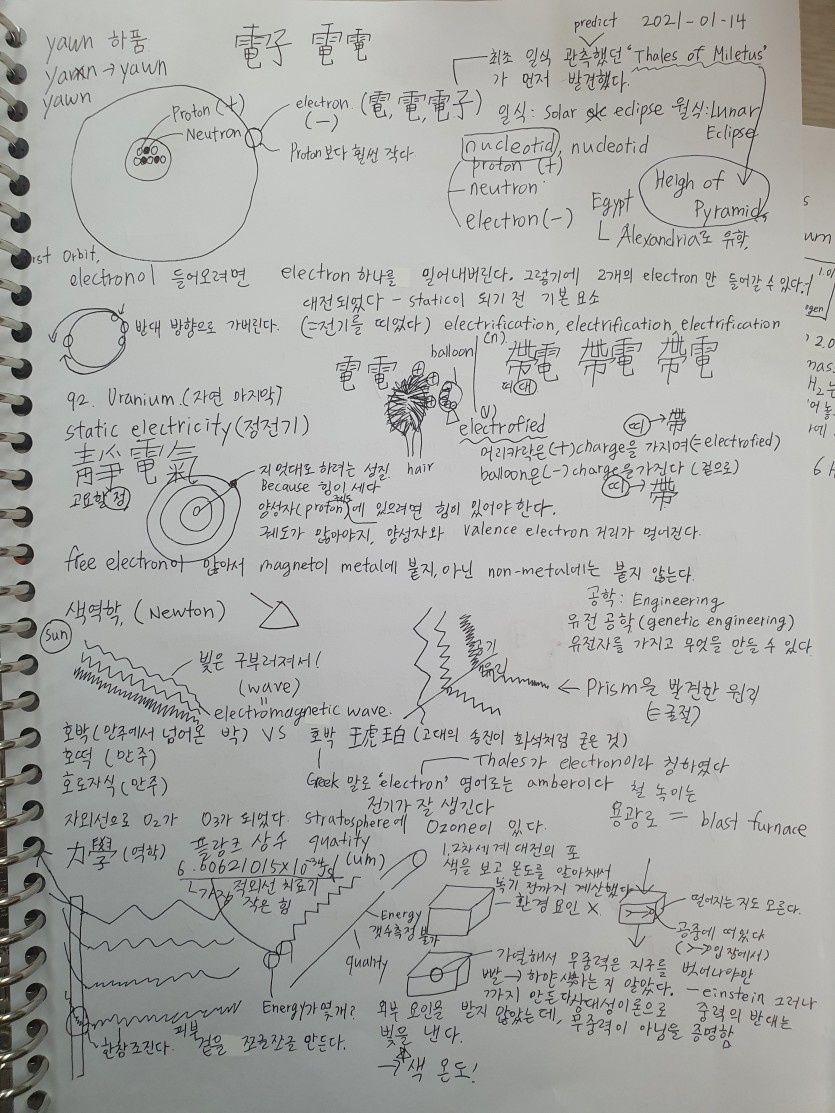 predict 2021-01-14
yawn 하품 電子 電電
yawn → yawn
yawn
최초 일식 관측했던 'Thales of Miletus'
가 먼저 발견했다.
Proton (+)
Neutron
electron (電, 電, 電子)
(-)
Proton보다 훨씬 작다.
일식: Solar eclipse 월식: Lunar
Eclipse
nucleotid, nucleotid
proton (+)
neutron
electron (-)
Egypt
Alexandria로 유학,
Heigh of
Pyramids
Orbit,
electron이 들어오려면 electron 하나를 밀어내버린다. 그렇기에 2개의 electron 만 들어갈 수 있다.
대전되었다 - static이 되기 전 기본 요소
반대 방향으로 가버린다. (=전기를 띠었다) electrification, electrification, electrification
(n)
電 電 balloon 帶電 帶電 帶電
띠 대
92. Uranium. (자연 마지막)
static electricity (정전기)
(v)
electrofied
띠 → 帶
머리카락은 (+)charge을 가지며 (=electrofied)
balloon은 (-) charge을 가진다 (겉으로)
띠 → 帶
hair
靜電氣
고요할 정
지 멋대로 하려는 성질.
Because 힘이 세다
양성자(proton)에 있으려면 힘이 있어야 한다.
궤도
궤도가 많아야지, 양성자와 valence electron 거리가 멀어진다.
free electron이 많아서 magnet이 metal에 붙지, 아닌 non-metal에는 붙지 않는다.
공학: Engineering
유전 공학 (genetic engineering)
유전자를 가지고 무엇을 만들 수 있다
색역학, (Newton)
Sun
빛은 구부러져서!
(wave)
=
electromagnetic wave.
공기
유리
← Prism을 발견한 원리
(=굴절)
호박(만주에서 넘어온 박) VS 호박 琥珀 (고대의 송진이 화석처럼 굳은 것)
호떡 (만주)
호도자식 (만주)
Thales가 electron이라 칭하였다
Greek 말로 'electron' 영어로는 amber이다
전기가 잘 생긴다
철 녹이는
용광로 = blast furnace
자외선으로 O2가 O3가 되었다. stratosphere에 Ozone이 있다.
力學 (역학) 플랑크 상수 quatity
(um)
6.60621015×10⁻³⁴Js
가장 적외선 치료기
작은 힘
1,2차세계 대전의 포
색을 보고 온도를 알아채서
녹기 전까지 계산했다
환경 요인 X.
떨어지는지도 모른다.
공중에 떠있다
( 입장에서)
Energy
갯수측정 불가
quality
가열해서 무중력은 지구를 벗어나야만
빨 → 하얀 색하는지 알았다. - einstein 그러나
까지 만든다 상대성이론으로 중력의 반대는
Energy가 몇개? 외부 요인을 받지 않았는데, 무중력이 아님을 증명함
빛을 낸다.
→ 색 온도!
한참조진다. 피부
겉을 쪼글쪼글 만든다.